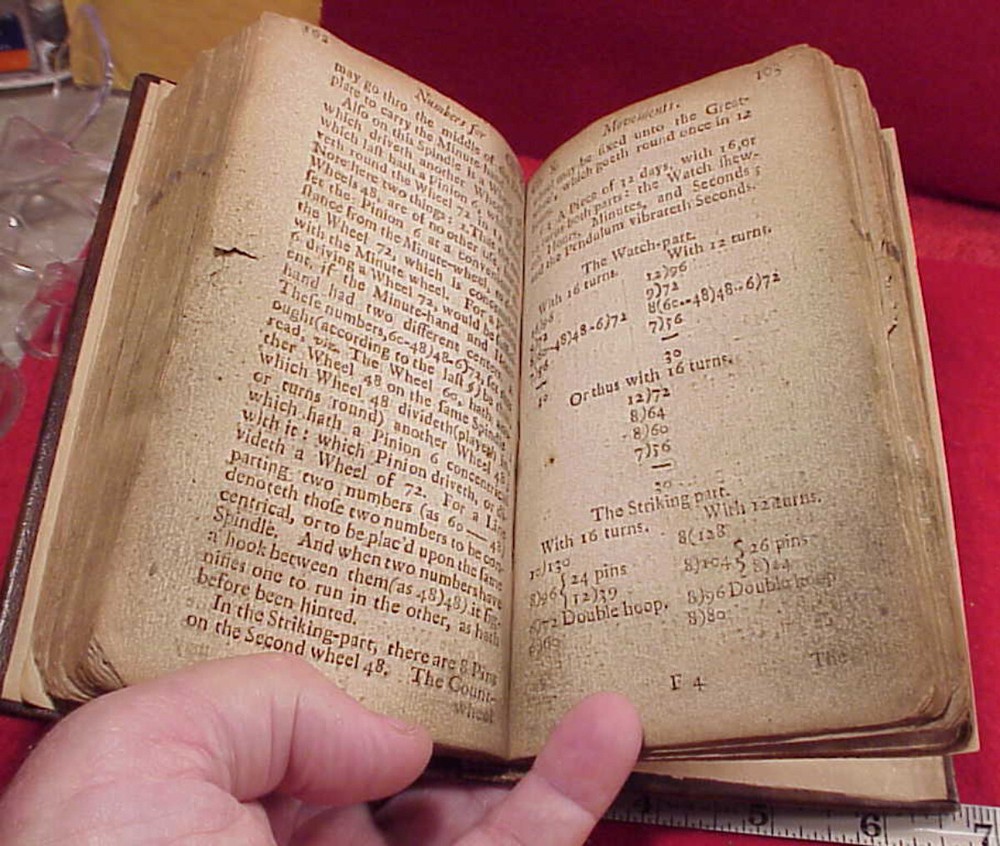 102
Numbers for
may go thro the middle of
plate to carry the Minute of
Also on this Spindle is a Wheel
which driveth another Wheel
which last hath a Pinion 6,
veth round the Wheel 72
Note here two things: 1. That
Wheels 48, are of no other use,
set the Pinion 6 at a convenient
stance from the Minute-wheel, to
the Wheel 72, which is concentrical
with the Minute wheel. For a
6 driving a Wheel 72, would be
ent, if the Minute-hand and
hand had two different centers.
These numbers, 60--48)48--6)72,
ought (according to the last §) be thus
read, viz. The Wheel 60, hath
ther Wheel 48 on the same Spindle;
which Wheel 48 divideth (playeth in,
or turns round) another Wheel 48;
which hath a Pinion 6 concentrical
with it: which Pinion driveth, or di-
videth a Wheel of 72. For a Line
parting two numbers (as 60—48)
denoteth those two numbers to be con-
centrical, or to be plac'd upon the same
Spindle. And when two numbers have
a hook between them (as 48)48) it sig-
nifies one to run in the other, as hath
before been hinted.
In the Striking-part, there are 8 Pins
on the Second wheel 48. The Count-
wheel
103
Movements.
may be fixed unto the Great-
which goeth round once in 12
A Piece of 12 days, with 16, or
the Watch shew-
Hours, Minutes, and Seconds;
and the Pendulum vibrateth Seconds.
The Watch-part.
With 16 turns. With 12 turns.
12)96
9)72
48)48--6)72 8(60--48)48--6)72
7)56
30
Or thus with 16 turns.
12)72
8)64
8)60
7)56
30
The Striking part.
With 16 turns. With 12 turns.
10)130 8(128
8)96 { 24 pins 8)104 { 26 pins
12)39 8)24
6)72 Double hoop. 8)96 Double hoop
8)80
The
F 4
4 5 6 7